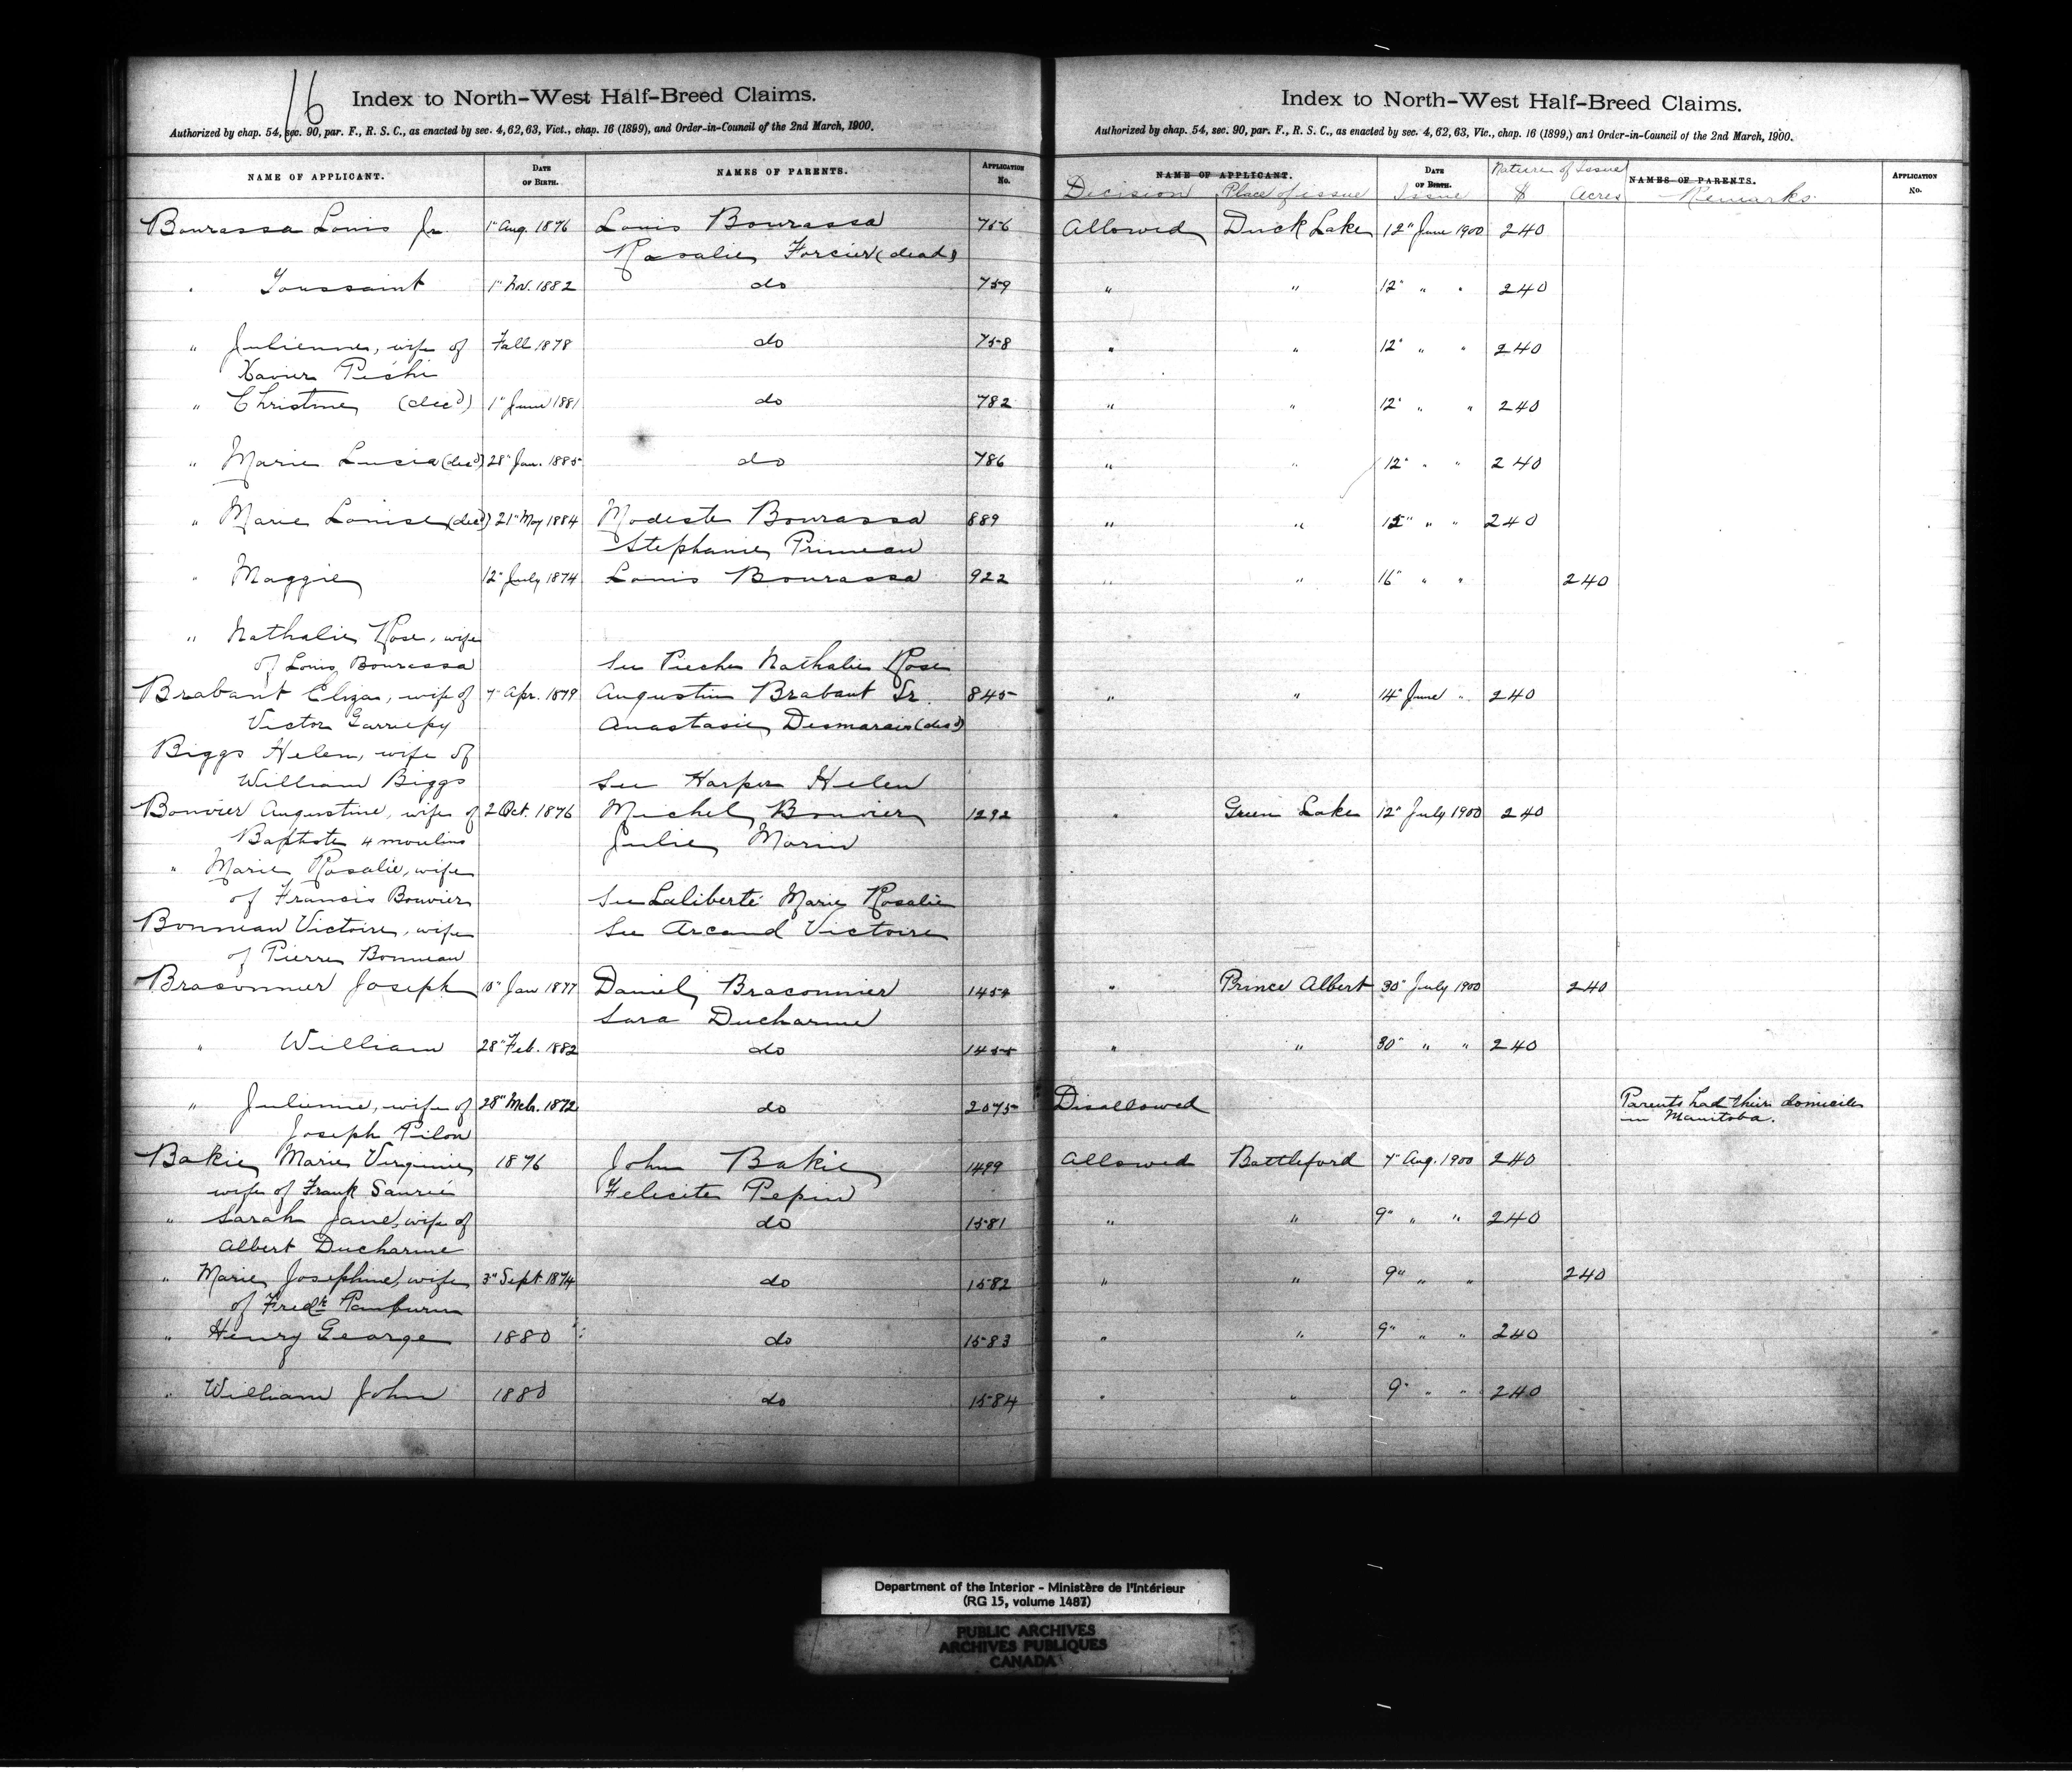 16
Index to North-West Half-Breed Claims.
Authorized by chap. 54, sec. 90, par. F., R. S. C., as enacted by sec. 4, 62, 63, Vict., chap. 16 (1899), and Order-in-Council of the 2nd March, 1900.
NAME OF APPLICANT. DATE OF BIRTH. NAMES OF PARENTS. APPLICATION No.
Bourassa Louis Jr. 1" Aug. 1876 Louis Bourassa 756
Rosalie Forcier (dead)
" Toussaint 1" Nov. 1882 do 759
" Julienne, wife of Fall 1878 do 758
Xavier Pichi
" Christine (dec'd) 1" June 1881 do 782
" Marie Lucia (dec'd) 28" Jan. 1885 do 786
" Marie Louise (dec'd) 21" May 1884 Modeste Bourassa 889
Stephanie Primeau
" Maggie 12" July 1874 Louis Bourassa 922
" Nathalie Rose, wife
of Louis Bourassa See Pieche Nathalie Rose
Brabant Eliza, wife of 7" Apr. 1879 Augustin Brabant Sr. 845
Victor Garriepy Anastasie Desmarais (dec'd)
Biggs Helen, wife of
William Biggs See Harper Helen
Bouvier Augustine, wife of 2 Oct. 1876 Michel Bouvier 1292
Baptiste 4 moulins Julie Morin
" Marie Rosalie, wife
of Francis Bouvier See Laliberté Marie Rosalie
Bonneau Victoire, wife See Arcand Victoire
of Pierre Bonneau
Braconnier Joseph 10" Jan 1877 Daniel Braconnier 1454
Sara Ducharme
" William 28" Feb. 1882 do 1455
" Julienne, wife of 28" Mch. 1872 do 2075
Joseph Pilon
Bakie Marie Virginie 1876 John Bakie 1499
wife of Frank Sauvé Felicite Pepin
" Sarah Jane, wife of do 1581
Albert Ducharme
" Marie Josephine, wife 3" Sept. 1874 do 1582
of Fredk Pamburn
" Henry George 1880 do 1583
" William John 1880 do 1584
Index to North-West Half-Breed Claims.
Authorized by chap. 54, sec. 90, par. F., R. S. C., as enacted by sec. 4, 62, 63, Vic., chap. 16 (1899,) and Order-in-Council of the 2nd March, 1900.
NAME OF APPLICANT. DATE OF BIRTH. Nature of Issue NAMES OF PARENTS. APPLICATION No.
Decision Place of issue Issue $ Acres Remarks
Allowed Duck Lake 12" June 1900 240
" " 12" " " 240
" " 12" " " 240
" " 12" " " 240
" " 12" " " 240
" " 15" " " 240
" " 16" " " 240
" " 14" June " 240
" Green Lake 12" July 1900 240
" Prince Albert 30" July 1900 240
" " 30" " " 240
Disallowed Parents had their domicile
in Manitoba.
Allowed Battleford 7" Aug. 1900 240
" " 9" " " 240
" " 9" " " 240
" " 9" " " 240
" " 9" " " 240
Department of the Interior - Ministère de l'Intérieur
(RG 15, volume 1487)
PUBLIC ARCHIVES
ARCHIVES PUBLIQUES
CANADA